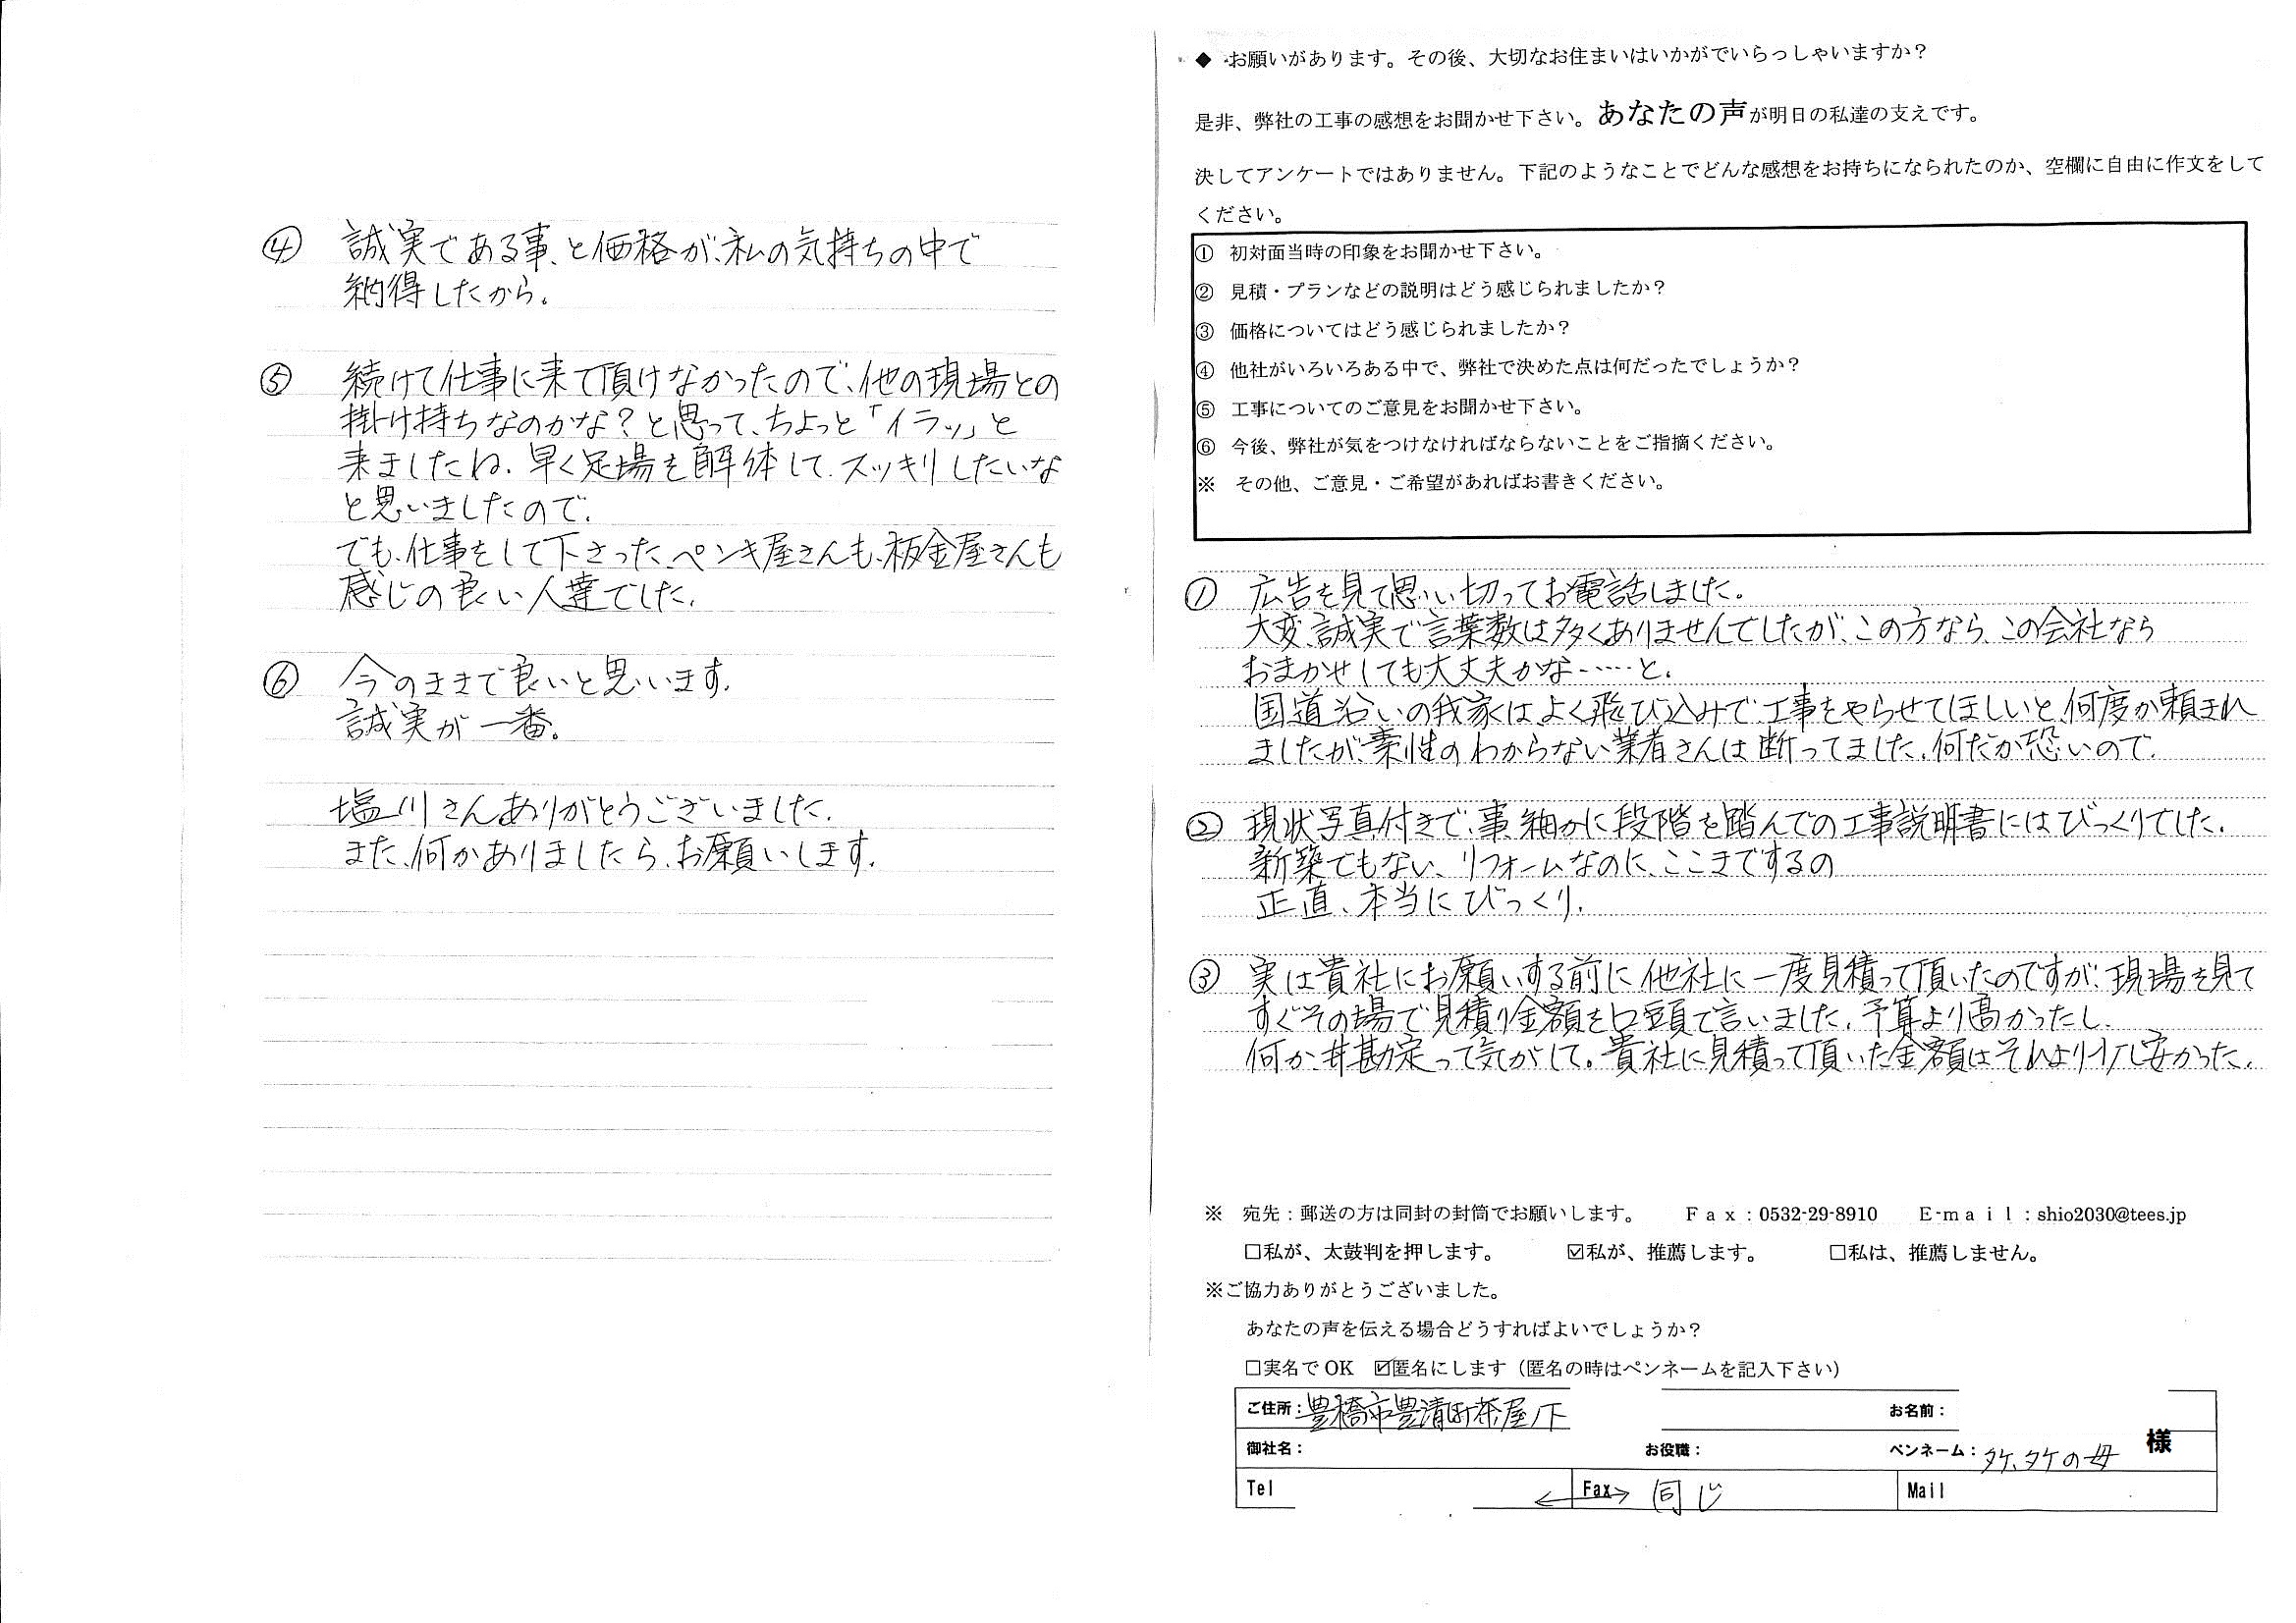 ◆ お願いがあります。その後、大切なお住まいはいかがでいらっしゃいますか？
是非、弊社の工事の感想をお聞かせ下さい。あなたの声が明日の私達の支えです。
決してアンケートではありません。下記のようなことでどんな感想をお持ちになられたのか、空欄に自由に作文をして
ください。
① 初対面当時の印象をお聞かせ下さい。
② 見積・プランなどの説明はどう感じられましたか？
③ 価格についてはどう感じられましたか？
④ 他社がいろいろある中で、弊社で決めた点は何だったでしょうか？
⑤ 工事についてのご意見をお聞かせ下さい。
⑥ 今後、弊社が気をつけなければならないことをご指摘ください。
※ その他、ご意見・ご希望があればお書きください。
① 広告を見て思い切ってお電話しました。
大変、誠実で言葉数は多くありませんでしたが、この方なら、この会社なら
おまかせしても大丈夫かな……と。
国道沿いの我家はよく飛び込みで、工事をやらせてほしいと、何度か頼まれ
ましたが、素性のわからない業者さんは断ってました。何だか恐いので。
② 現状写真付きで、事細かに段階を踏んでの工事説明書にはびっくりでした。
新築でもない、リフォームなのに、ここまでするの
正直、本当にびっくり。
③ 実は貴社にお願いする前に他社に一度見積って頂いたのですが、現場を見て
すぐその場で見積り金額を口頭で言いました。予算より高かったし、
何か、丼勘定って気がして。貴社に見積って頂いた金額はそれより少し安かった。
④ 誠実である事、と価格が、私の気持ちの中で
納得したから。
⑤ 続けて仕事に来て頂けなかったので、他の現場との
掛け持ちなのかな？と思って、ちょっと「イラッ」と
来ましたね。早く足場を解体して、スッキリしたいな
と思いましたので。
でも、仕事をして下さった、ペンキ屋さんも、板金屋さんも
感じの良い人達でした。
⑥ 今のままで良いと思います。
誠実が一番。
塩川さんありがとうございました。
また、何かありましたら、お願いします。
※ 宛先：郵送の方は同封の封筒でお願いします。 Ｆａｘ：0532-29-8910 Ｅ-ｍａｉｌ：shio2030@tees.jp
□私が、太鼓判を押します。 ☑私が、推薦します。 □私は、推薦しません。
※ご協力ありがとうございました。
あなたの声を伝える場合どうすればよいでしょうか？
□実名でOK ☑匿名にします（匿名の時はペンネームを記入下さい）
ご住所：豊橋市豊清町茶屋ノ下 お名前：
御社名： お役職： ペンネーム：タケ、タケの母 様
Tel ←Fax→ 同じ Mail